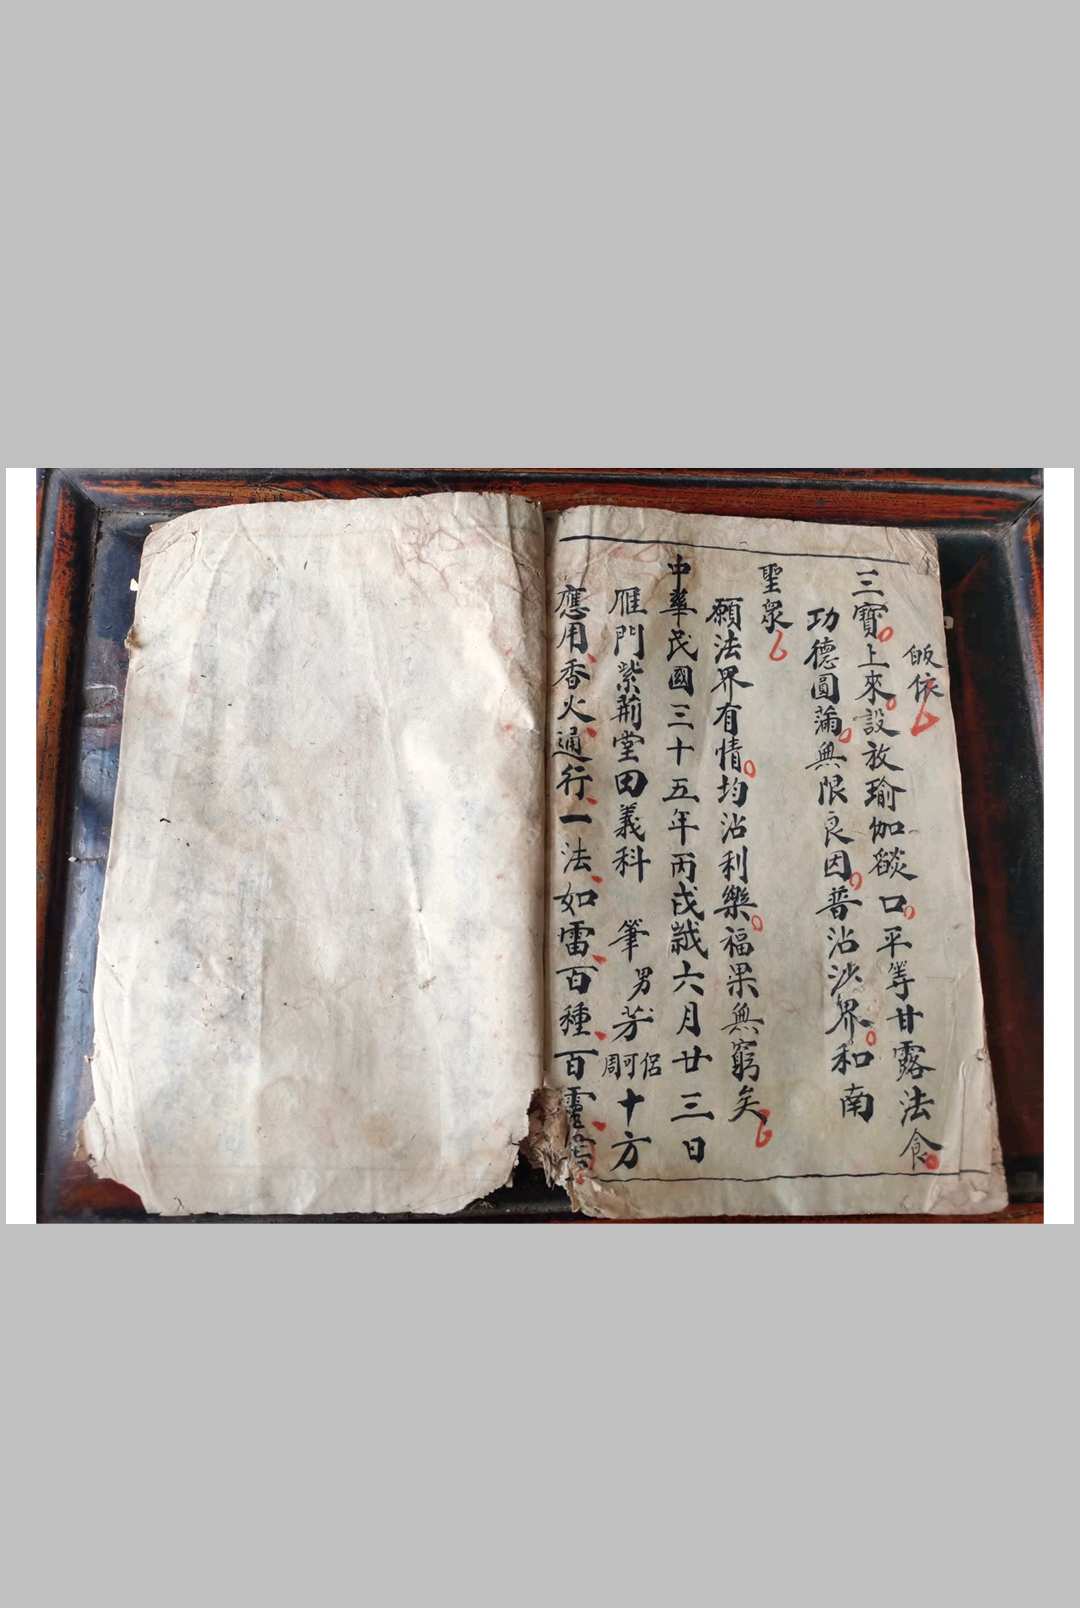 皈依
三寶上來設放瑜伽燄口平等甘露法食
功德圓滿無限良因普沾沙界和南
聖衆
願法界有情均沾利樂福果無窮矣
中華民國三十五年丙戌歲六月廿三日
雁門紫荊堂田義科 筆男芳侶可周十方
應用香火通行一法如雷百種百靈